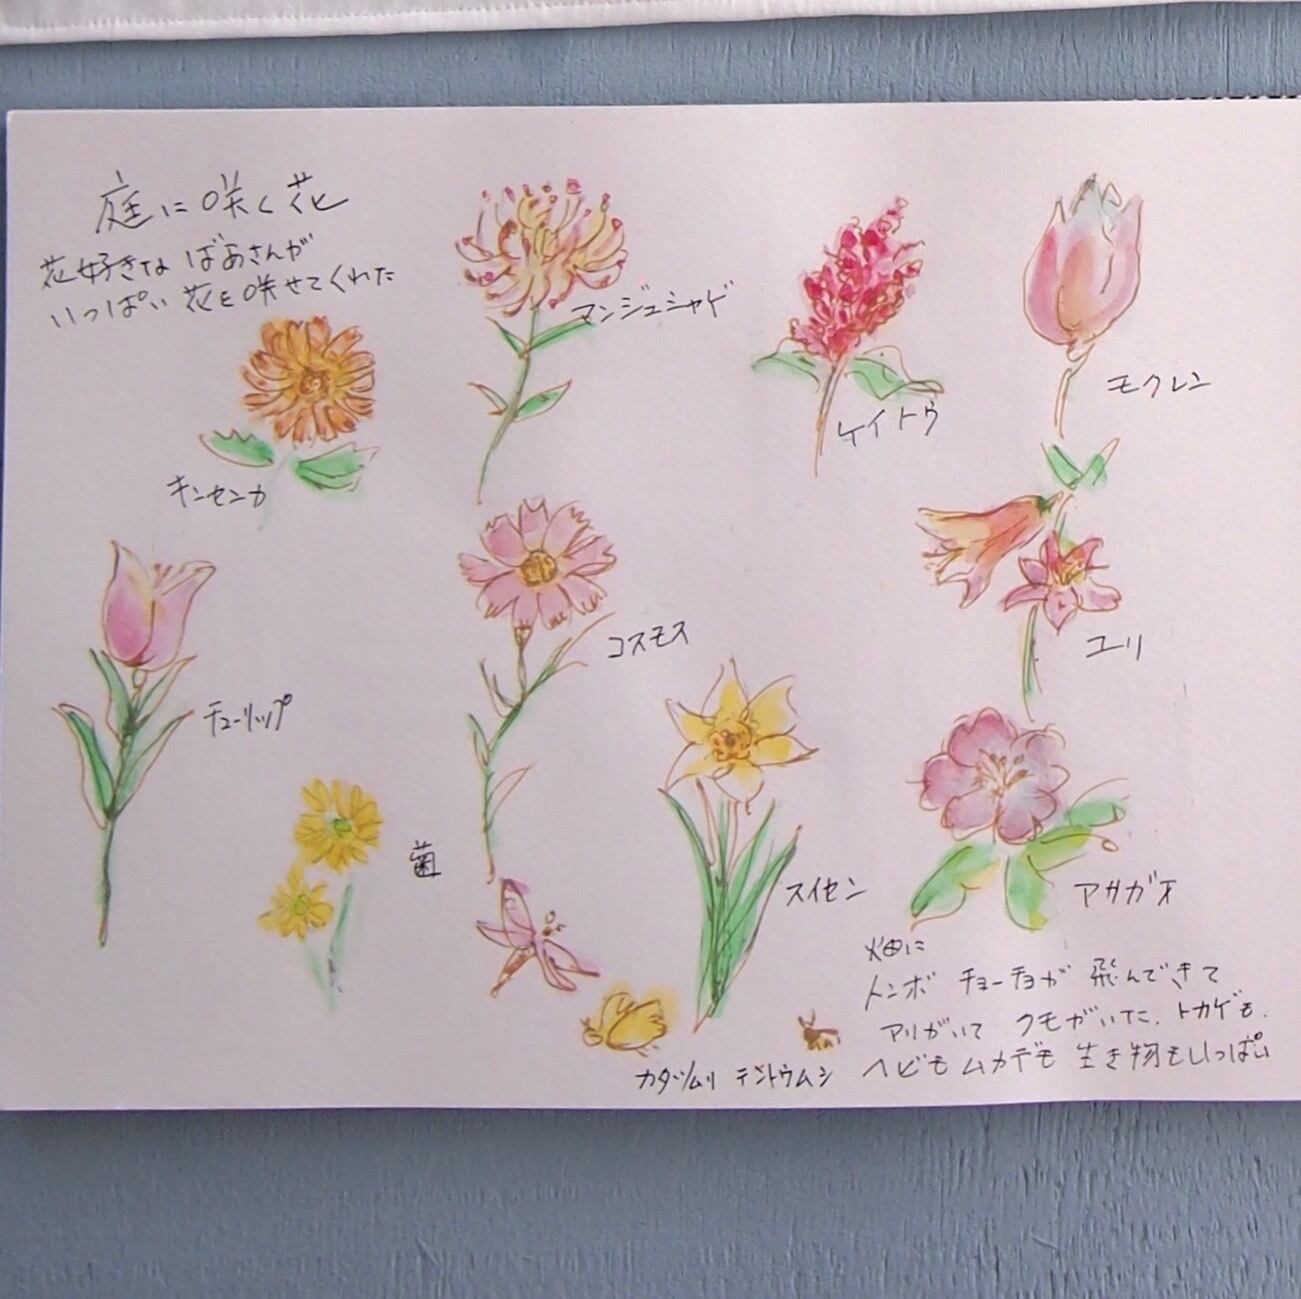 庭に咲く花
花好きな ばあさんが
いっぱい 花を咲せてくれた
マンジュシャゲ
ケイトウ
モクレン
キンセンカ
コスモス
ユリ
チューリップ
菊
スイセン
アサガオ
畑に
トンボ チョーチョが 飛んできて
アリがいて クモがいた、トカゲも、
カタツムリ テントウムシ ヘビも ムカデも 生き物もいっぱい